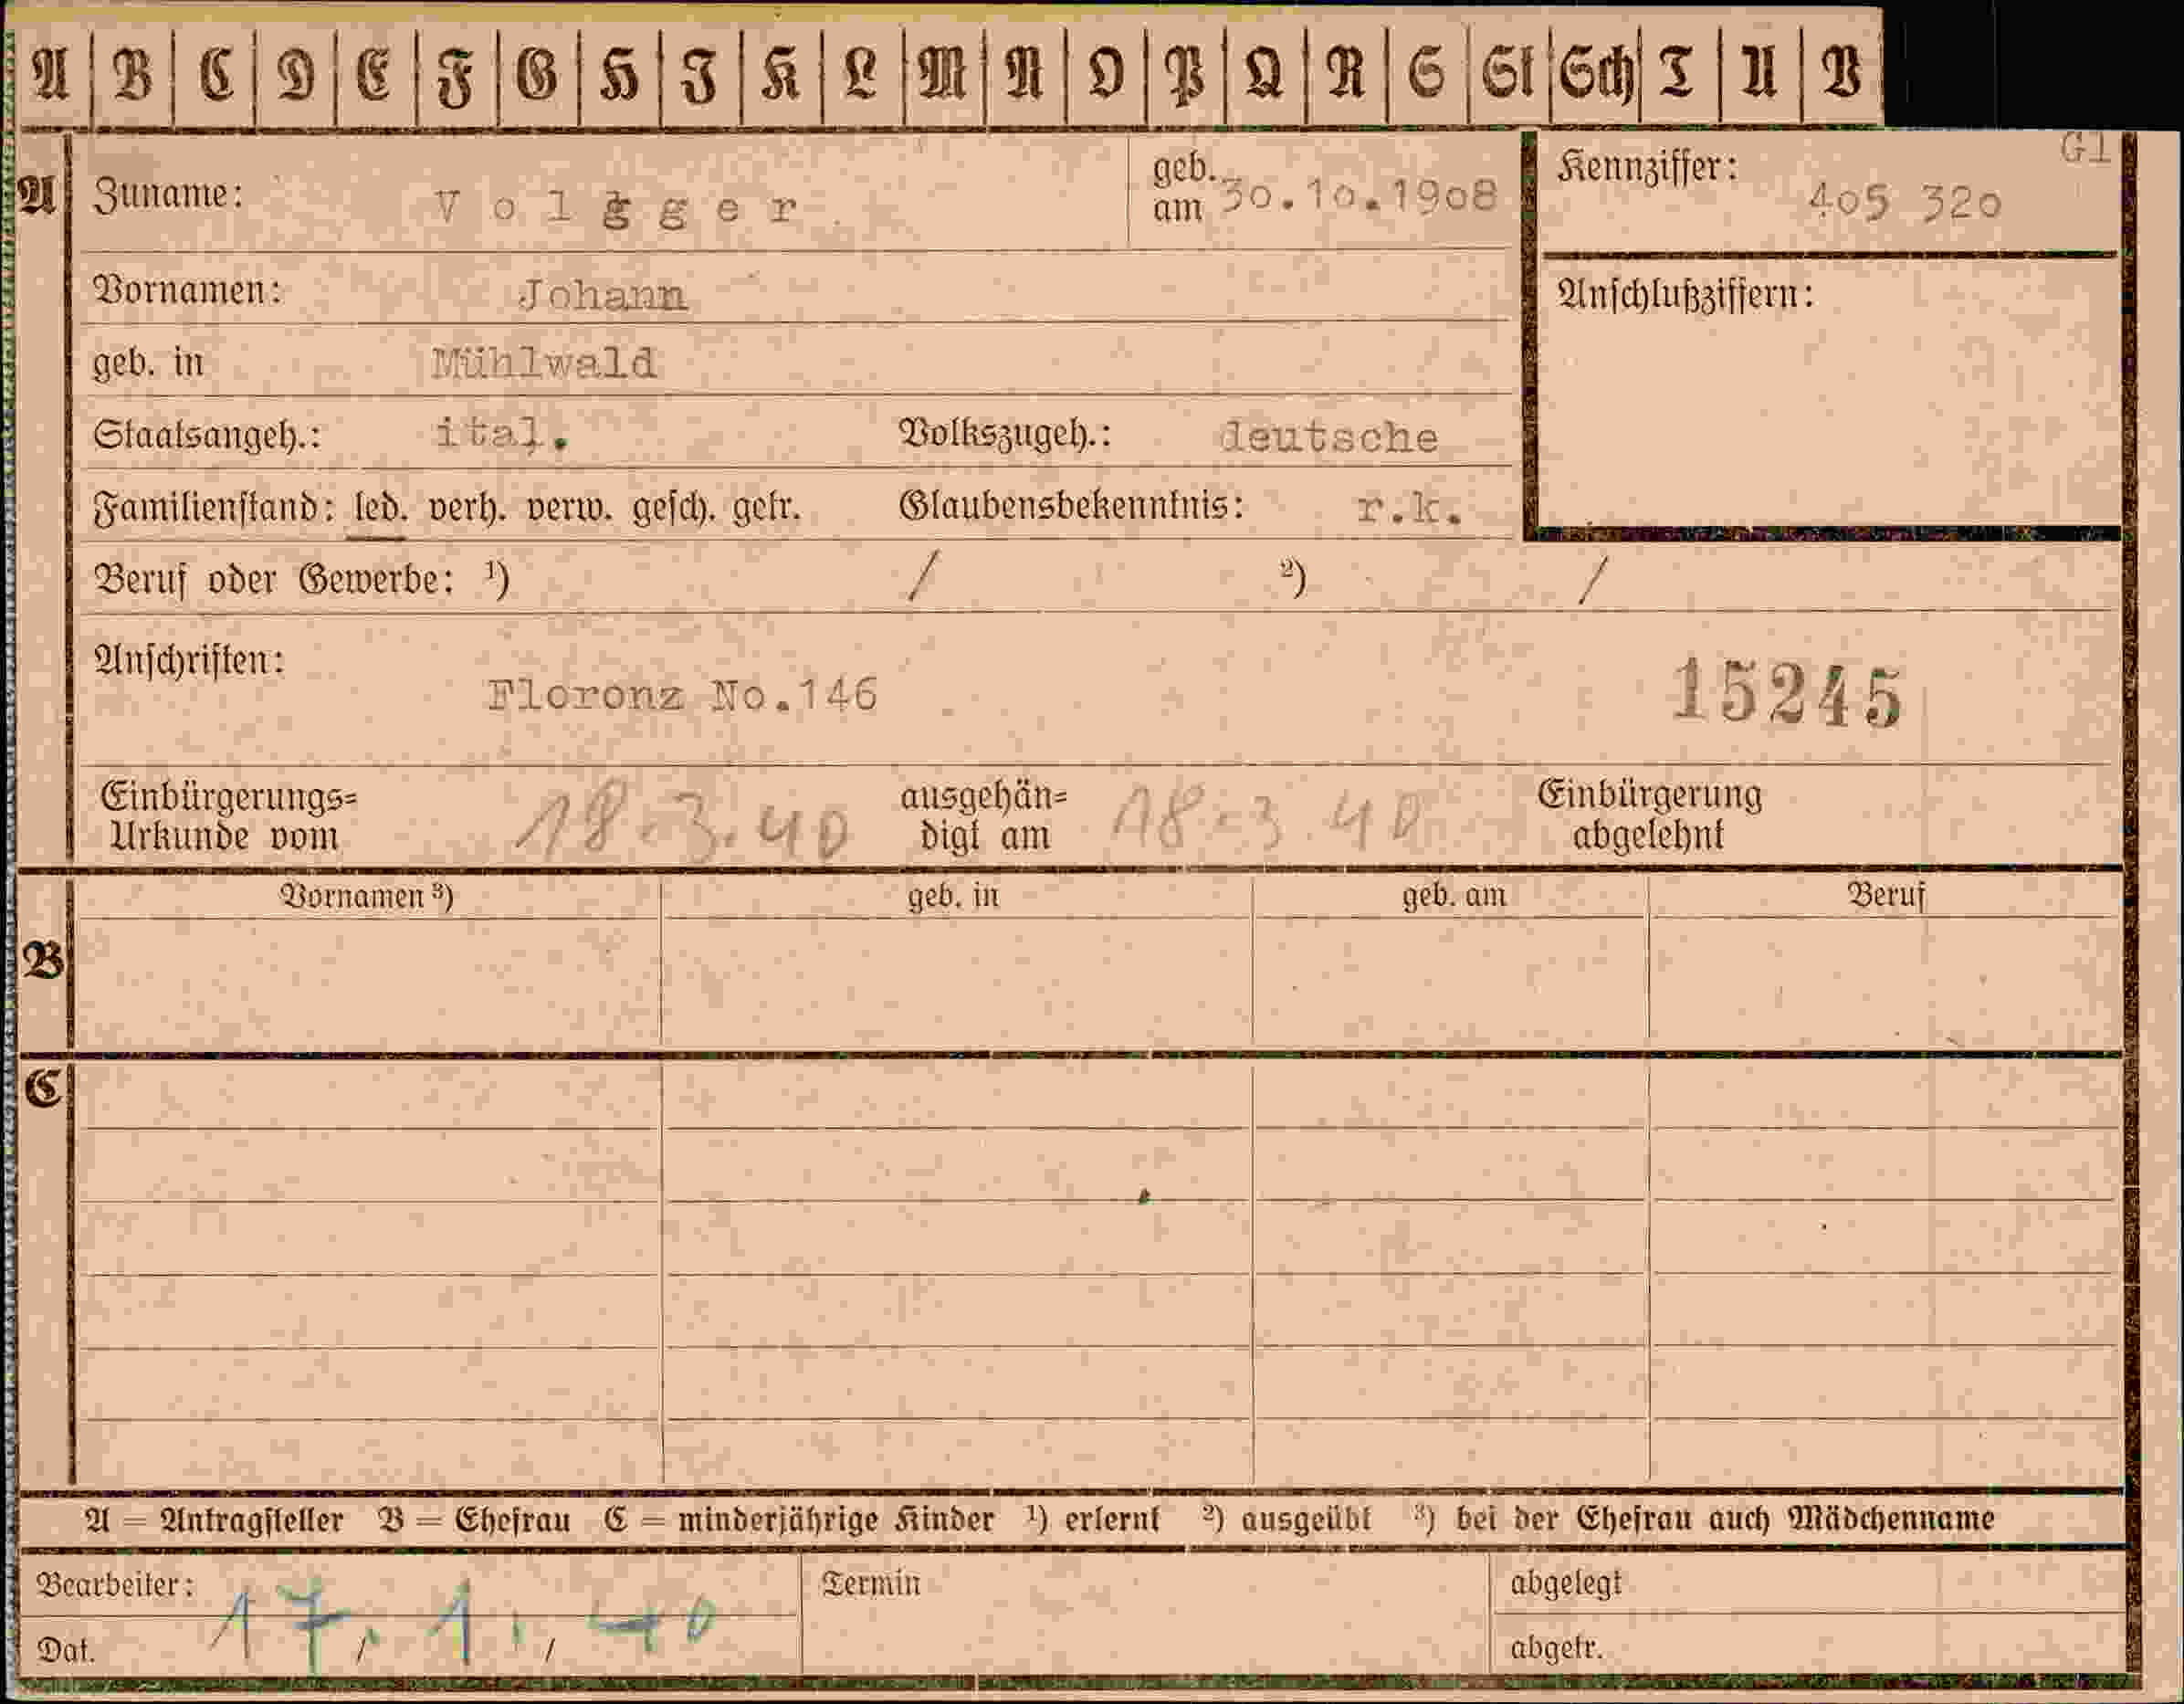 A B C D E F G H J K L M N O P Q R S St Sch T U V
G1
A Zuname: Volgger geb. am 30.10.1908 Kennziffer: 405 320
Vornamen: Johann Anschlußziffern:
geb. in Mühlwald
Staatsangeh.: ital. Volkszugeh.: deutsche
Familienstand: led. verh. verw. gesch. getr. Glaubensbekenntnis: r.k.
Beruf oder Gewerbe: ¹) / ²) /
Anschriften:
Floronz No.146 15245
Einbürgerungs= ausgehän= Einbürgerung
Urkunde vom 18.3.40 digt am 18.3.40 abgelehnt
Vornamen ³) geb. in geb. am Beruf
B
C
A = Antragsteller B = Ehefrau C = minderjährige Kinder ¹) erlernt ²) ausgeübt ³) bei der Ehefrau auch Mädchenname
Bearbeiter: Termin abgelegt
Dat. 17. 1. 40 / / abgetr.